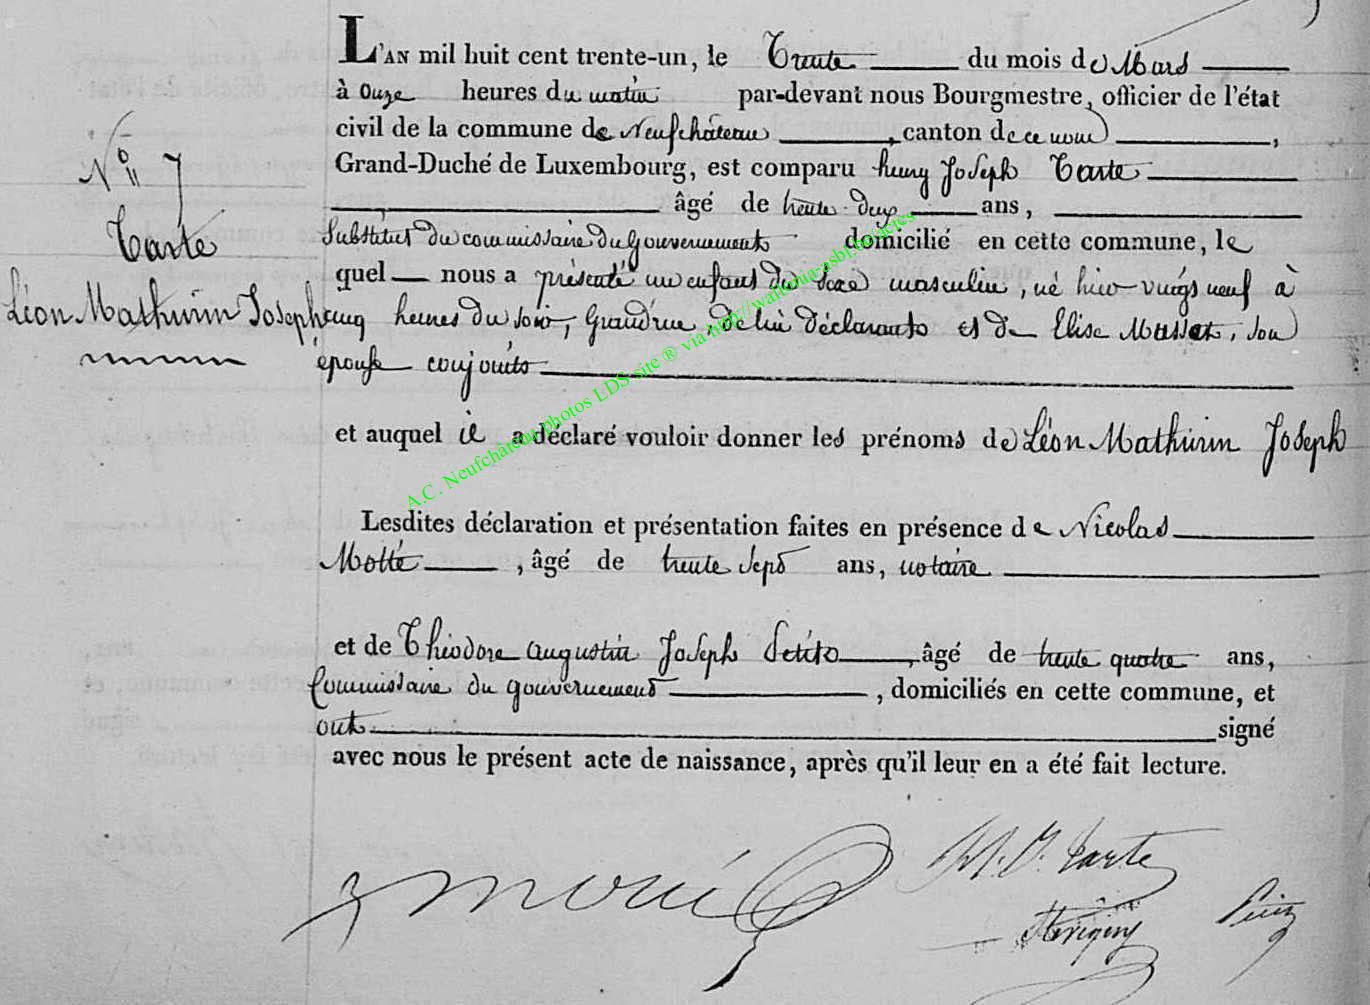 L'AN mil huit cent trente-un, le Trente du mois de Mars
à onze heures du matin par-devant nous Bourgmestre, officier de l'état
civil de la commune de Neufchâteau, canton de ce nom,
Grand-Duché de Luxembourg, est comparu henry Joseph Tarte
âgé de trente-deux ans,
Substitut du commissaire du Gouvernement domicilié en cette commune, le
quel nous a présenté un enfant du sexe masculin, né hier vingt neuf à
cinq heures du soir, Grand'rue, de lui déclarant et de Elise Massart, son
épouse conjoints
et auquel il a déclaré vouloir donner les prénoms de Léon Mathurin Joseph
Lesdites déclaration et présentation faites en présence de Nicolas
Motté, âgé de trente sept ans, notaire
et de Théodore augustin Joseph, âgé de trente quatre ans,
Commissaire du gouvernement, domiciliés en cette commune, et
ont signé
avec nous le présent acte de naissance, après qu'il leur en a été fait lecture.
No 7
Tarte
Léon Mathurin Joseph
A.C. Neufchâteau photos LDS site ® via http://wallonia-asbl.be/actes
Tarte